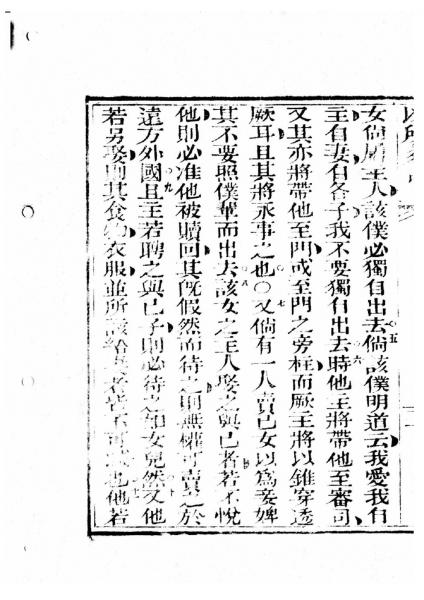 女尙屬主人該僕必獨自出去倘該僕明道云我愛我自
主自妻自各子我不要獨自出去時他主將帶他至審司
又其亦將帶他至門或至門之旁柱而厥主將以錐穿透
厥耳且其將永事之也○又倘有一人賣己女以爲妾婢
其不要照僕輩而出去該女之主人娶之與己者若不悅
他則必准他被贖回其旣假然而待之則無權可賣之於
遠方外國且主若聘之與己子則必待之如女兒然又他
若另娶則其食物衣服並所該給者皆不可也他若